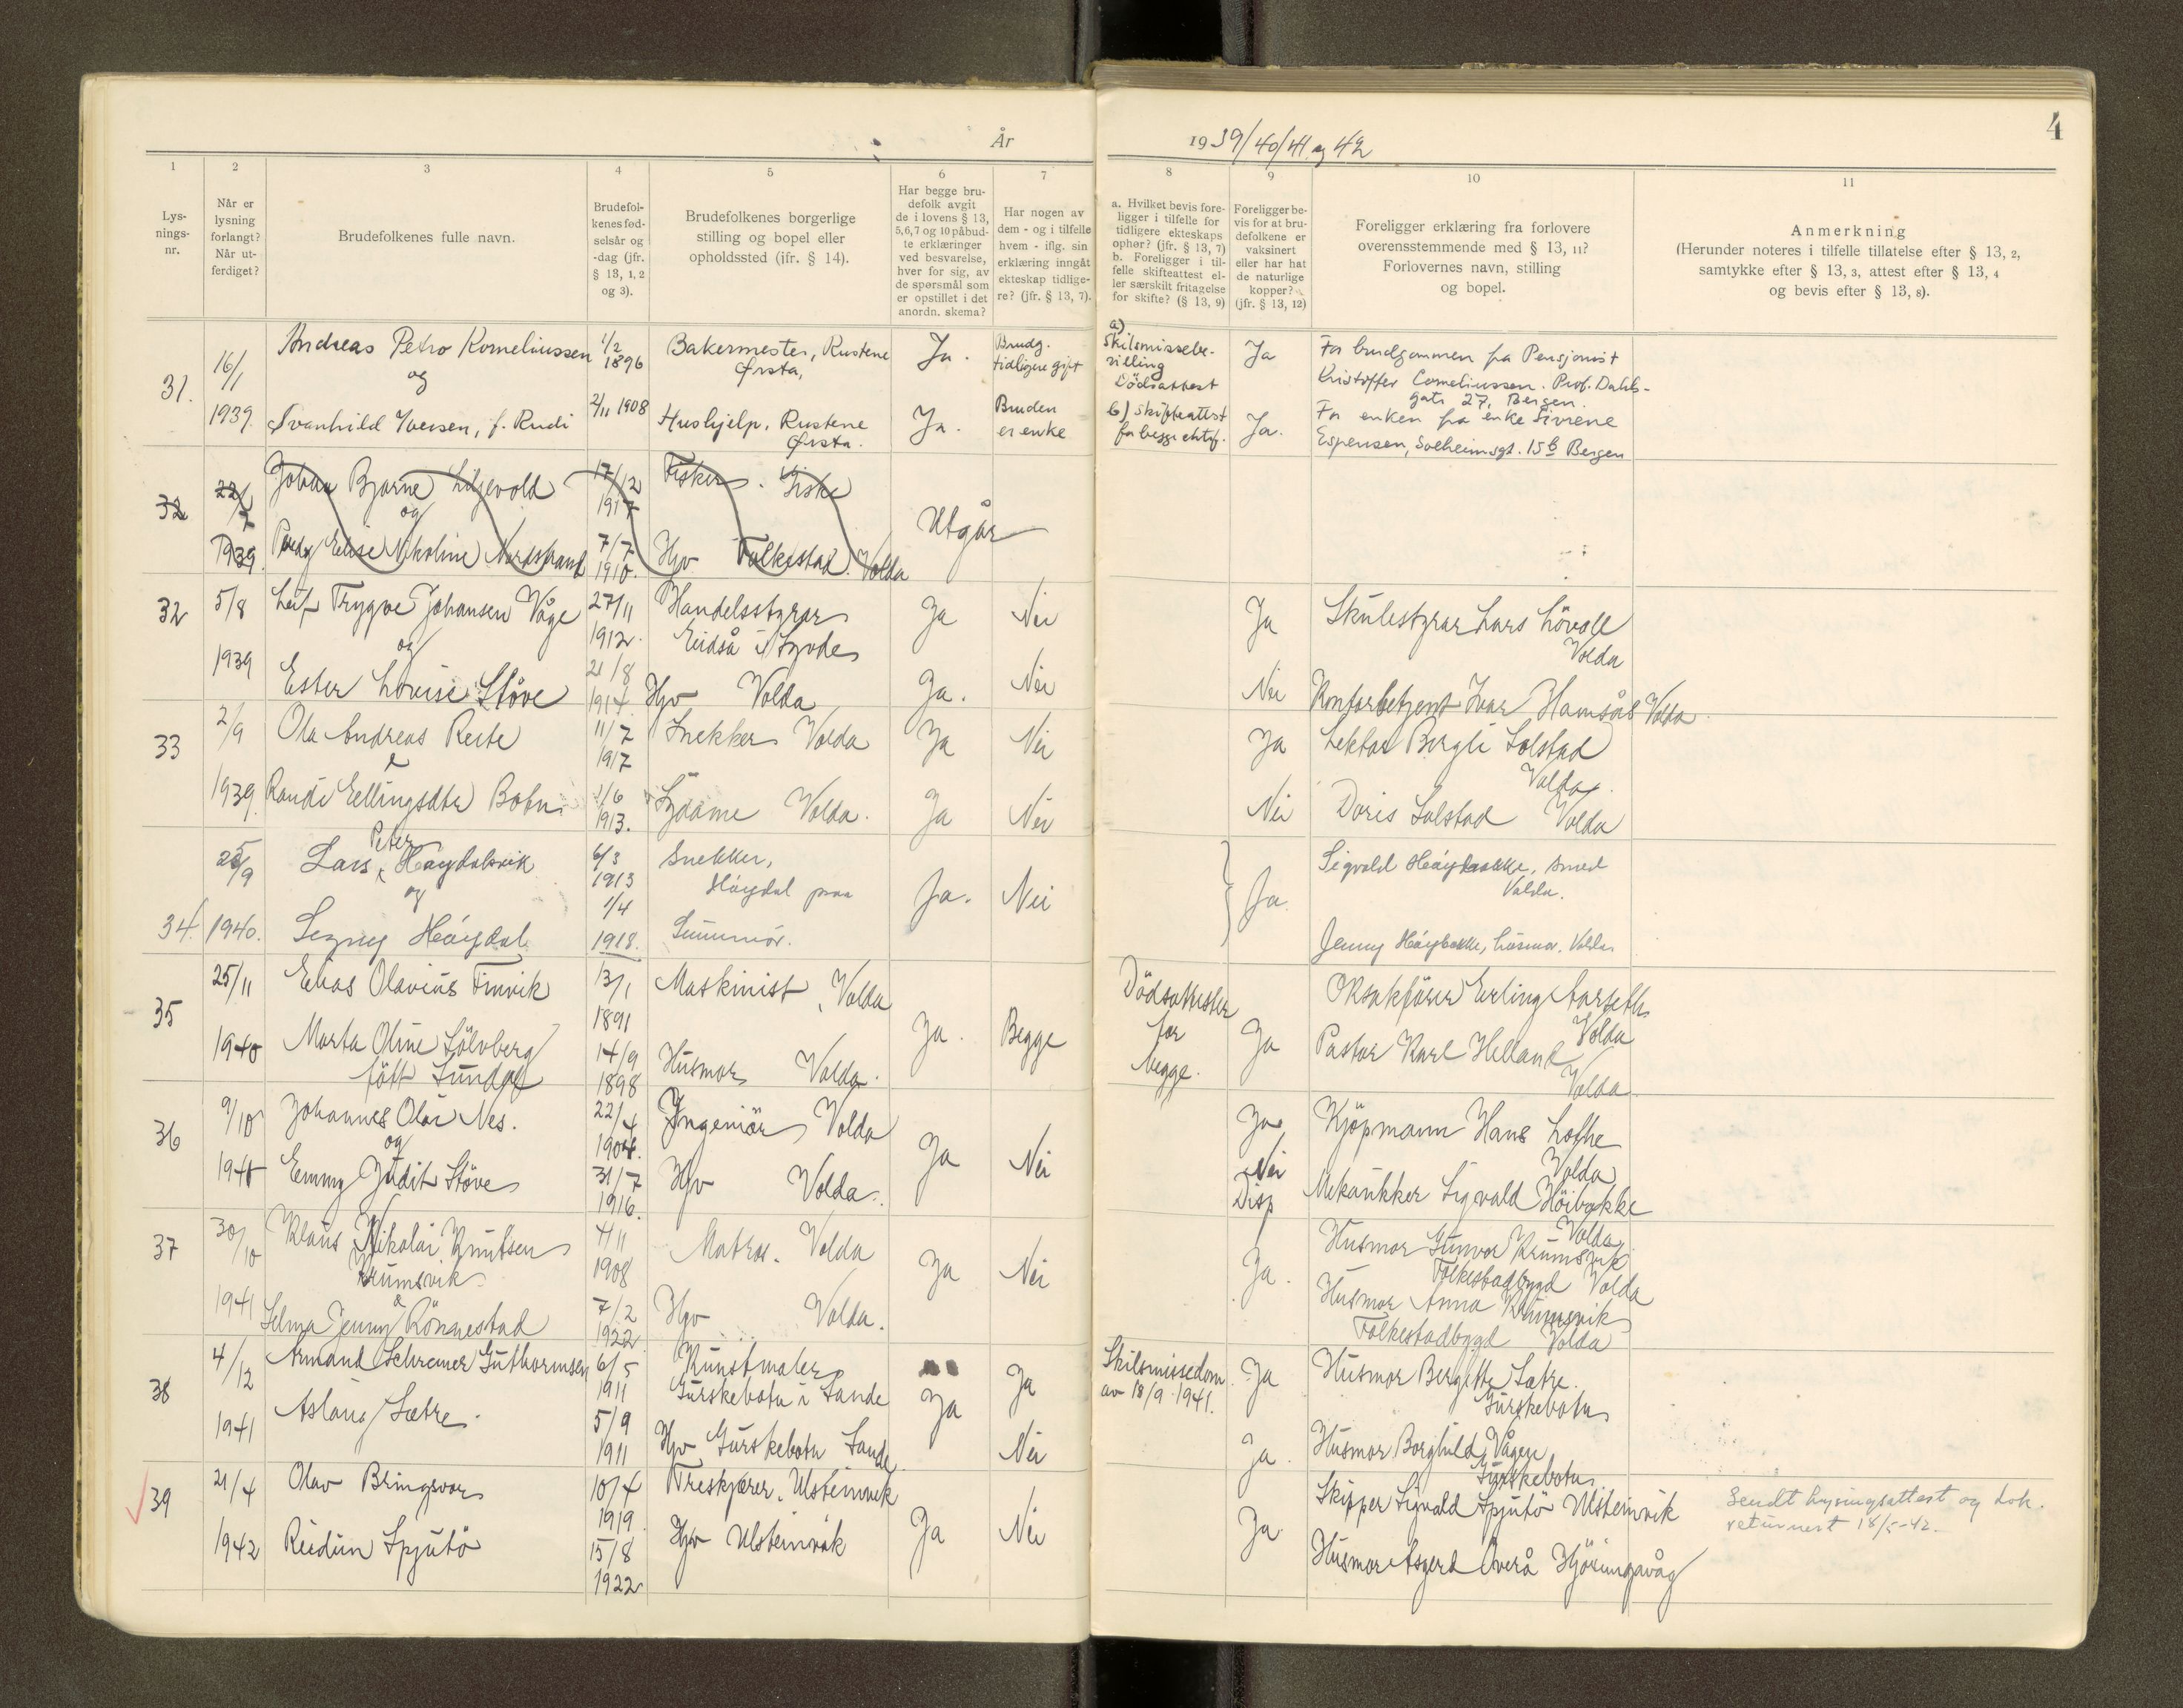 År
1939/40/41 og 42
4
1
2
3
4
5
6
7
8
9
10
11
Lys-
nings-
nr.
Når er
lysning
forlangt?
Når ut-
ferdiget?
Brudefolkenes fulle navn.
Brudefol-
kenes fød-
selsår og
-dag (jfr.
§ 13, 1, 2
og 3).
Brudefolkenes borgerlige
stilling og bopel eller
opholdssted (ifr. § 14).
Har begge bru-
defolk avgit
de i lovens § 13,
5,6,7 og 10 påbud-
te erklæringer
ved besvarelse,
hver for sig, av
de spørsmål som
er opstillet i det
anordn. skema?
Har nogen av
dem - og i tilfelle
hvem - iflg. sin
erklæring inngåt
ekteskap tidlige-
re? (jfr. § 13, 7).
a. Hvilket bevis fore-
ligger i tilfelle for
tidligere ekteskaps
ophør? (jfr. § 13, 7)
b. Foreligger i til-
felle skifteattest el-
ler særskilt fritagelse
for skifte? (§ 13, 9)
Foreligger be-
vis for at bru-
defolkene er
vaksinert
eller har hat
de naturlige
kopper?
(jfr. § 13, 12)
Foreligger erklæring fra forlovere
overensstemmende med § 13, 11?
Forlovernes navn, stilling
og bopel.
Anmerkning
(Herunder noteres i tilfelle tillatelse efter § 13, 2,
samtykke efter § 13, 3, attest efter § 13, 4
og bevis efter § 13, 8).
31.
16/1
1939.
Andreas Petro Korneliussen
og
Svanhild Iversen, f. Rudi
1/2
1896
2/11 1908
Bakermester, Rustene
Ørsta,
Hushjelp, Rustene
Ørsta.
Ja.
Ja.
Brudg.
tidligere gift
Bruden
er enke
a)
Skilsmissebe-
villing
Dödsattest
b) Skifteattest
for begge ektef.
Ja
Ja.
For brudgommen fra Pensjonist
Kristoffer Corneliussen. Prof. Dahls-
gate 27, Bergen.
For enken fra enke
Espensen, Solheimsgt. 15b Bergen
32
22/7
1939.
Johan Bjarne Liljevold
og
Elise Nikoline Nordstrand
17/12
1917
7/7
1910.
Fisker. Giske
Hjv Folkestad. Volda
Utgår
32
5/8
1939
Leif Trygve Johansen Våge
og
Ester Lovise Støve
27/11
1912.
21/8
1914.
Handelsstyrar
Eidså i Syvde
Hjv Volda
Ja
Ja.
Nei
Nei
Ja
Nei
Skulestyrar Lars Lövoll
Volda
Kontorbetjent Ivar Hamsås Volda.
33
2/9
1939.
Ola Andreas Reite
&
Randi Ellingsdtr Botn
11/7
1917
1/6
1913.
Snekker Volda
Sydame Volda.
Ja
Ja
Nei
Nei
Ja
Nei
Lektor Bergli Solstad
Volda.
Doris Solstad Volda
34.
25/9
1940.
Peter
Lars Høydalsvik
og
Signy Høydal
6/3
1913
1/4
1918.
Snekker,
Høydal paa
Sunnmør.
Ja.
Nei
Ja.
Sigvald Høybakke, smed
Volda.
Jenny Høybakke, husmor. Volda
35
25/11
1940
Elias Olavius Finvik
Marta Oline Sölvberg
fött Lunde
13/1
1891
14/9
1898
Maskinist, Volda
Husmor Volda.
Ja.
Begge
Dödsattester
for
begge.
Ja
Oksakförer Erling Aarseth
Volda
Pastor Karl Helland
Volda
36
9/10
1941
Johannes Olai Nes.
og
Emmy Judit Støve
22/4
1904.
31/7
1916.
Ingeniör Volda
Hjv Volda.
Ja
Nei
Ja
Nei
Disp
Kjöpmann Hans Lothe
Volda
Mekanikker Sigvald Höibakke
Volda
37
30/10
1941
Klaus Nikolai Knutsen
Krumsvik
&
Selma Jenny Rönnestad
4/11
1908
7/2
1922
Matros. Volda
Hjv Volda.
Ja
Nei
Ja.
Husmor Gunvor Krumsvik
Folkestadbygd Volda
Husmor Anna Krumsvik
Folkestadbygd Volda
38
4/12
1941
Armand Schreiner Guthormsen
Aslaug Sætre.
6/5
1911
5/9
1911
Kunstmaler
Gurskebotn i Sande
Hjv Gurskebotn Sande
Ja
Ja
Nei
Skilsmissedom
av 18/9-1941.
Ja
Ja.
Husmor Bergitte Sætre.
Gurskebotn
Husmor Borghild Vågen
Gurskebotn
39
21/4
1942
Olav Bringsvor
Reidun Spjutö
10/4
1919
15/8
1922
Treskjærer. Ulsteinvik
Hjv Ulsteinvik
Ja
Nei
Ja
Skipper Sigvald Spjutö Ulsteinvik
Husmor Asgerd Överå Hjörungavåg
Sendt lysningsattest og dok.
returnert 18/5-42.